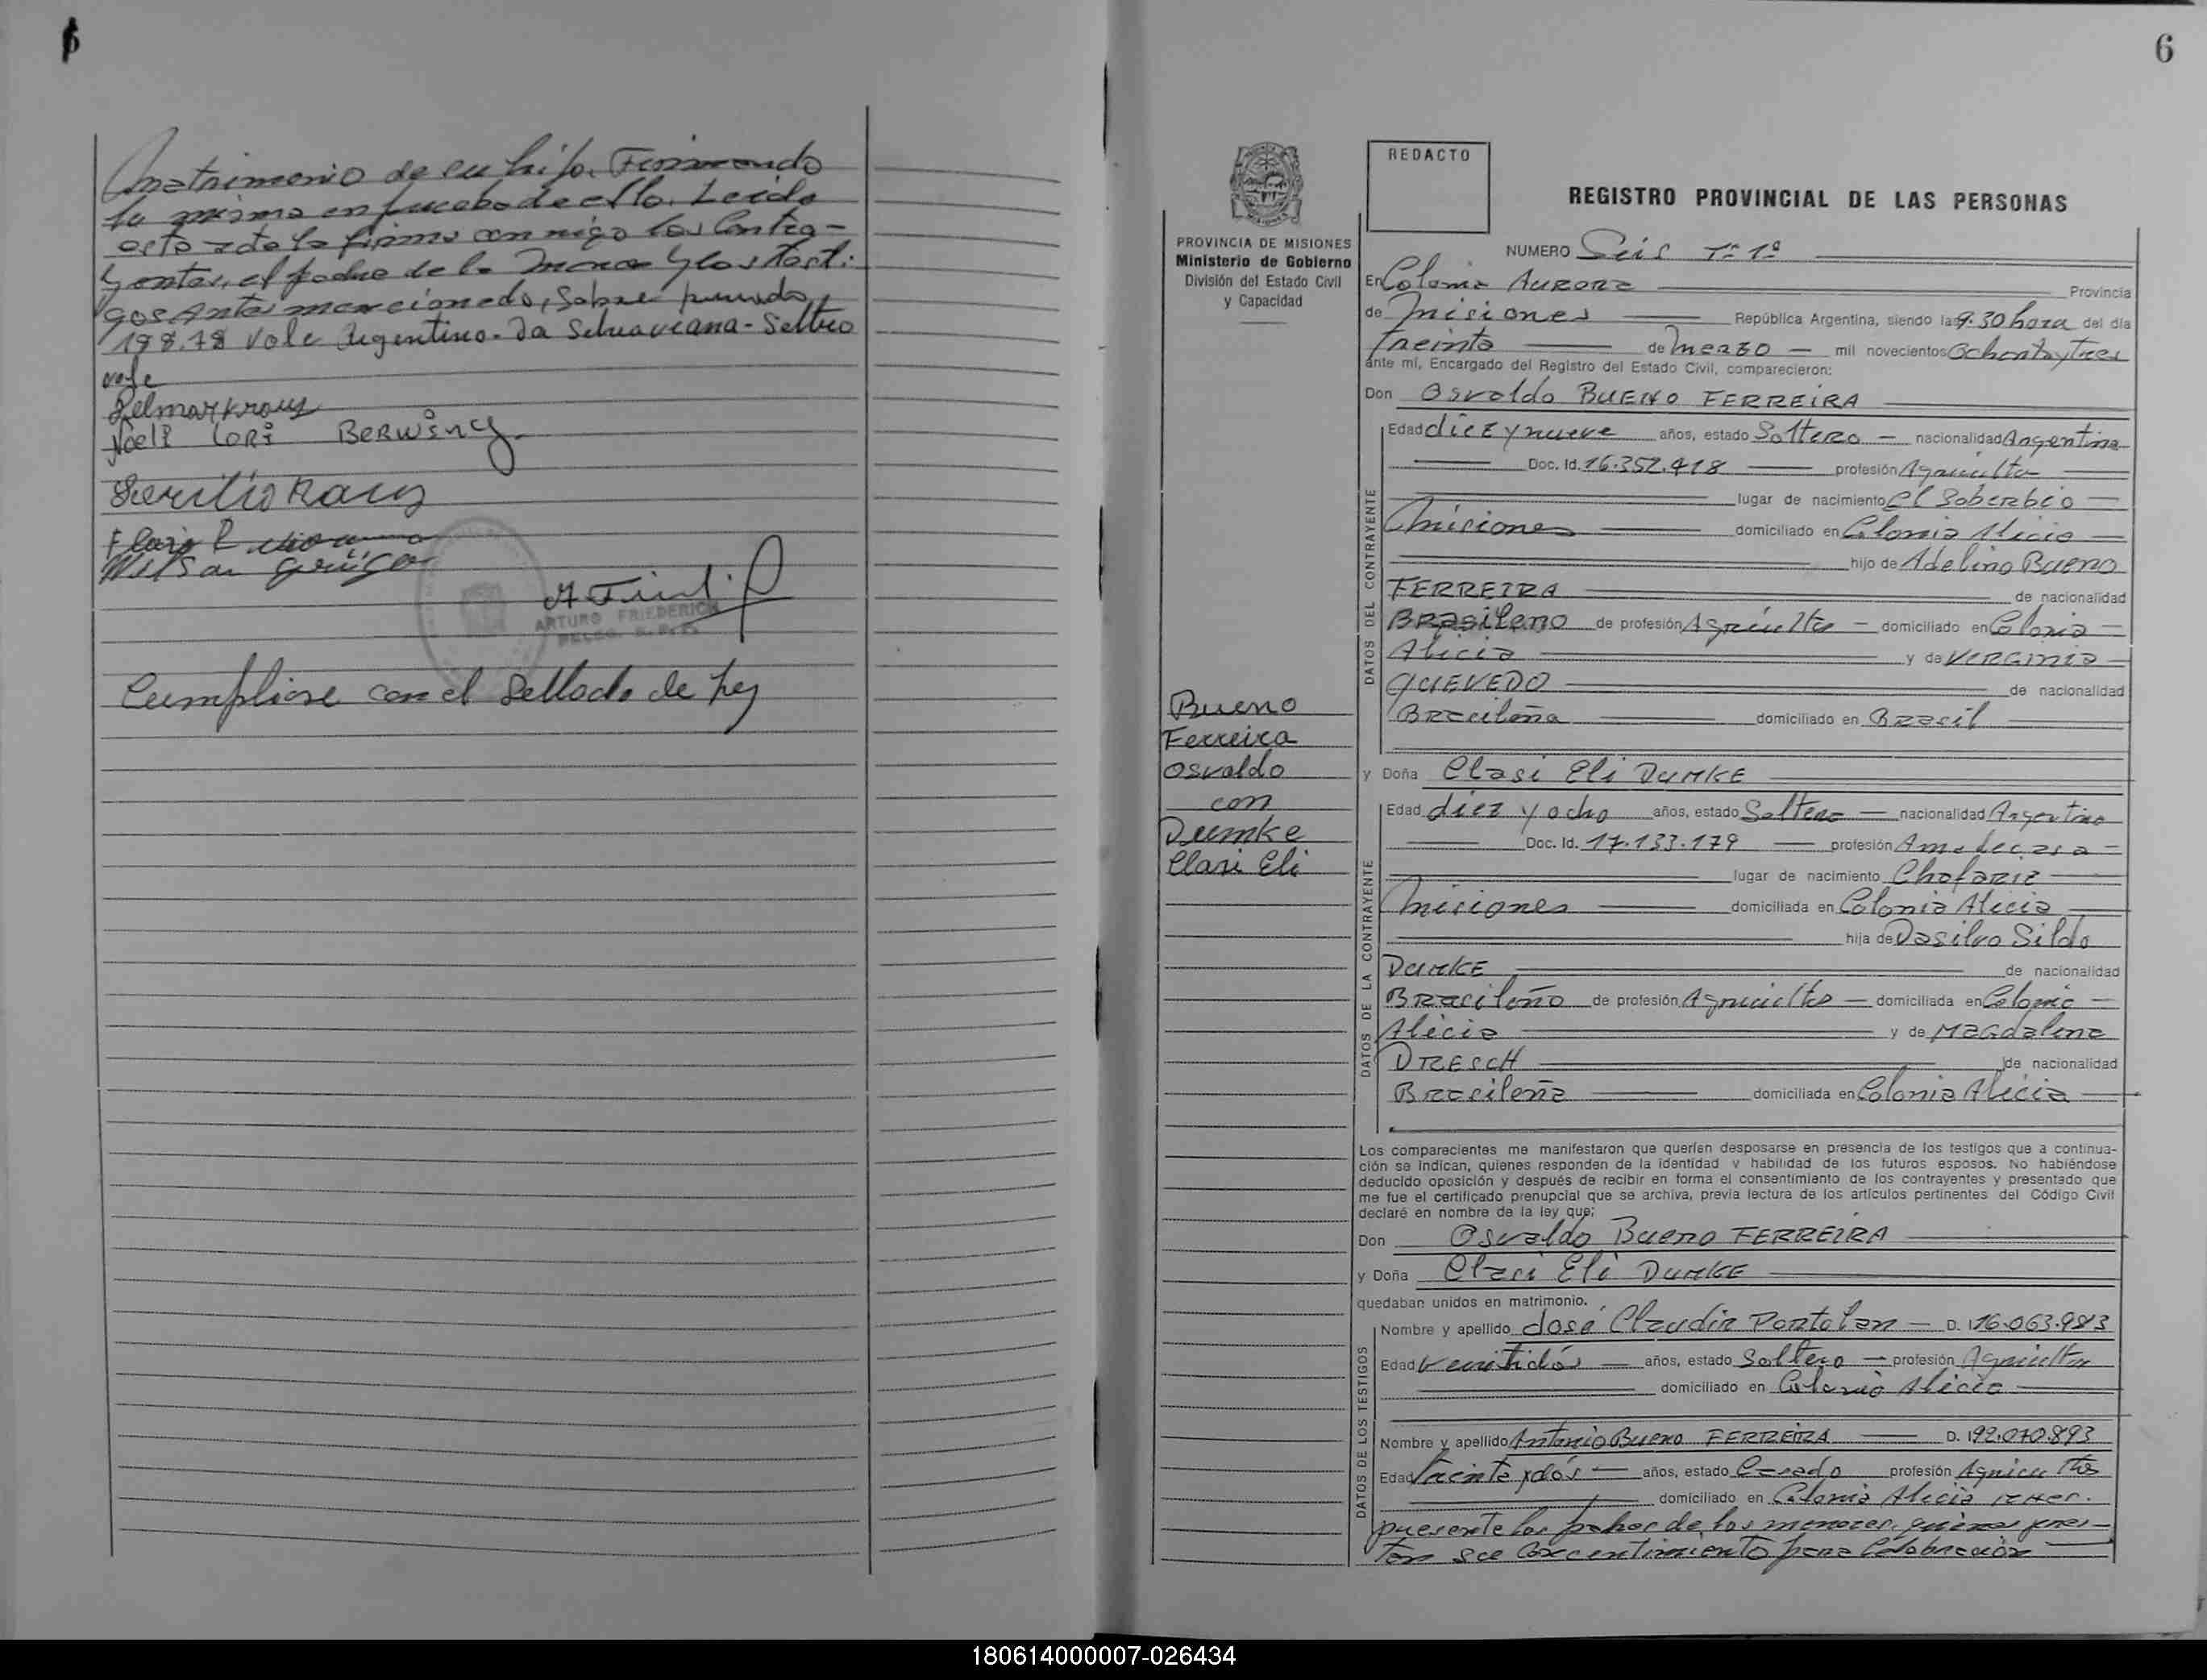 6
matrimonio de su hija. Firmando
la misma en prueba de ello. Leida
acta
esta acta la firma con migo los Contra-
yentes, el padre de la menor y los testi-
gos Antes mencionado, Sobre puuado,
198.78 Vale Argentino-Da Silva -Soltero
vale
Noeli Lori Berwing
Wilson
ARTURO FRIEDERICH
DELEG. R. P. P.
Cumpliose con el Sellado de Ley
6
REDACTO
REGISTRO PROVINCIAL DE LAS PERSONAS
PROVINCIA DE MISIONES
Ministerio de Gobierno
División del Estado Civil
y Capacidad
NUMERO Seis Tº 1º
En Colonia Aurora Provincia
de Misiones República Argentina, siendo las 9.30 hora del día
treinta de Marzo mil novecientos Ochenta y tres
ante mí, Encargado del Registro del Estado Civil, comparecieron:
Don Osvaldo BUENO FERREIRA
DATOS DEL CONTRAYENTE
Edad diez y nueve años, estado Soltero nacionalidad Argentina
Doc. Id. 16.352.418 profesión Agricultor
lugar de nacimiento El Soberbio
Misiones domiciliado en Colonia Alicia
hijo de Adelino Bueno
FERREIRA de nacionalidad
Brasileno de profesión Agricultor domiciliado en Colonia
Alicia y de Verginia
QUEVEDO de nacionalidad
Brasileña domiciliado en Brasil
Bueno
Ferreira
Osvaldo
con
Dumke
Clasi Eli
y Doña Clasi Eli DUMKE
DATOS DE LA CONTRAYENTE
Edad diez y ocho años, estado Soltera nacionalidad Argentina
Doc. Id. 17.133.179 profesión Ama de casa
lugar de nacimiento Chafariz
Misiones domiciliada en Colonia Alicia
hija de Dasilvo Sildo
DUMKE de nacionalidad
Brasileño de profesión Agricultor domiciliada en Colonia
Alicia y de Magdalena
DRESCH de nacionalidad
Brasileña domiciliada en Colonia Alicia
Los comparecientes me manifestaron que querían desposarse en presencia de los testigos que a continua-
ción se indican, quienes responden de la identidad y habilidad de los futuros esposos. No habiéndose
deducido oposición y después de recibir en forma el consentimiento de los contrayentes y presentado que
me fue el certificado prenupcial que se archiva, previa lectura de los artículos pertinentes del Código Civil
declaré en nombre de la ley que;
Don Osvaldo Bueno FERREIRA
y Doña Clasi Eli DUMKE
quedaban unidos en matrimonio.
DATOS DE LOS TESTIGOS
Nombre y apellido José Claudir Portolan D. I 16.063.983
Edad Veintidós años, estado Soltero profesión Agricultor
domiciliado en Colonia Alicia
Nombre y apellido Antonio Bueno FERREIRA D. I 92.070.893
Edad treinta y dós años, estado Casado profesión Agricultor
domiciliado en Colonia Alicia
presente los padres de los menores, quienes pres-
tan su Concentimiento para Celebracion
180614000007-026434